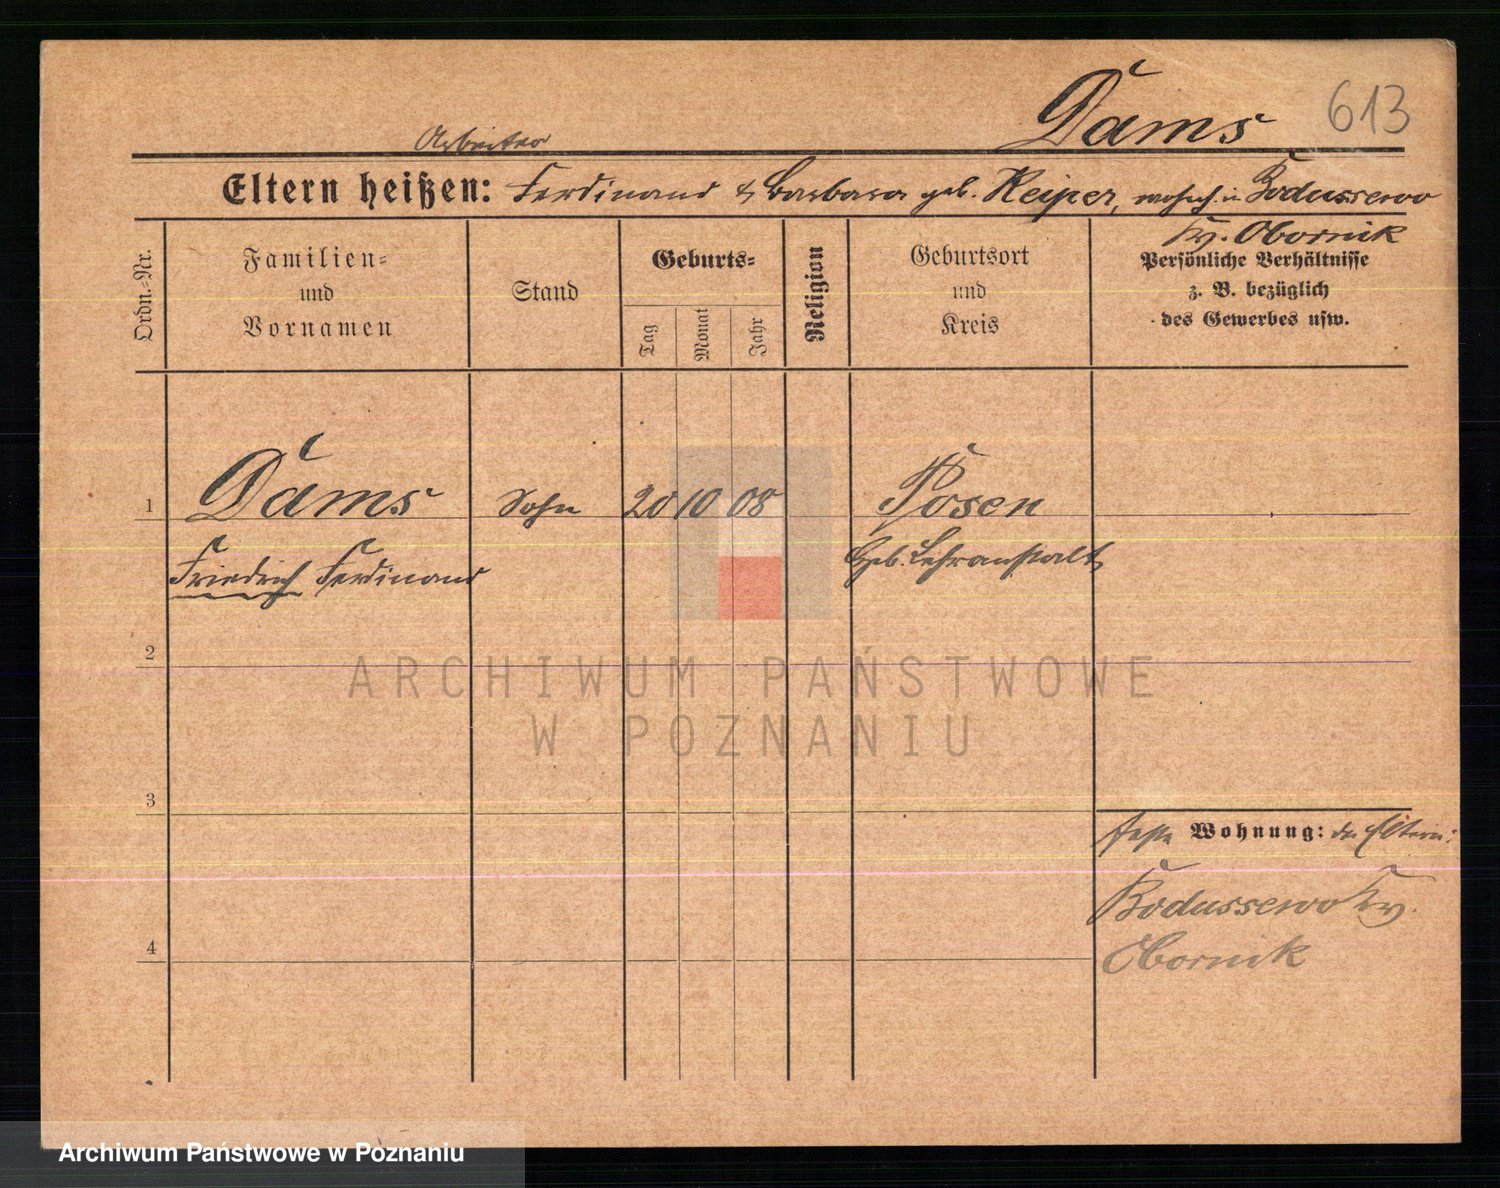 Dams 613
Arbeiter
Eltern heißen: Ferdinand & Barbara geb. Keiper, wohnh. in Bodussewo
Kr. Obornik
Ordn.-Nr.
Familien-
und
Vornamen
Stand
Geburts-
Tag
Monat
Jahr
Religion
Geburtsort
und
Kreis
Persönliche Verhältnisse
z. B. bezüglich
des Gewerbes usw.
1 Dams Sohn 20 10 08 Posen
Friedrich Ferdinand Geb. Lehranstalt
2
ARCHIWUM PAŃSTWOWE
W POZNANIU
3
Wohnung: der Eltern:
Bodussewo Kr.
4
Obornik
Archiwum Państwowe w Poznaniu